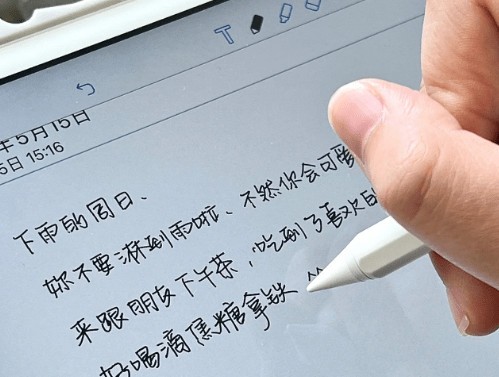 T
年5月15日
5日 15:16
下雨的周日、
妳不要淋到雨啦、不然你会可爱
来跟朋友下午茶，吃到了喜欢的
好喝滴焦糖拿铁